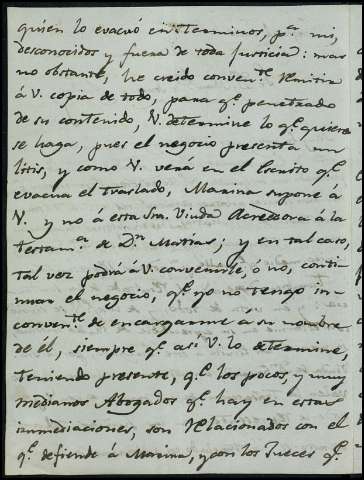 quien lo evacuó en terminos, p.ª mi,
desconocidos y fuera de toda Justicia: mas
no obstante, he creido conven.te remitir
á V. copia de todo, para q.e penetrado
de su contenido, V. determine lo q.e quiere
se haga, pues el negocio presenta un
litis, y como V. verá en el Escrito q.e
evacua el traslado, Marina supone á
V. y no á esta Sra. Viuda Acredora á la
testam.a de D.n Matias; y en tal caso,
tal vez podrá á V. convenirle, ó no, conti-
nuar el negocio, q.e yo no tengo in-
conven.te de encargarme á su nombre
de él, siempre q.e asi V. lo determine,
teniendo presente, q.e los pocos, y muy
medianos Abogados q.e hay en estas
inmediaciones, son relacionados con el
q.e defiende á Marina, y con los Jueces q.e